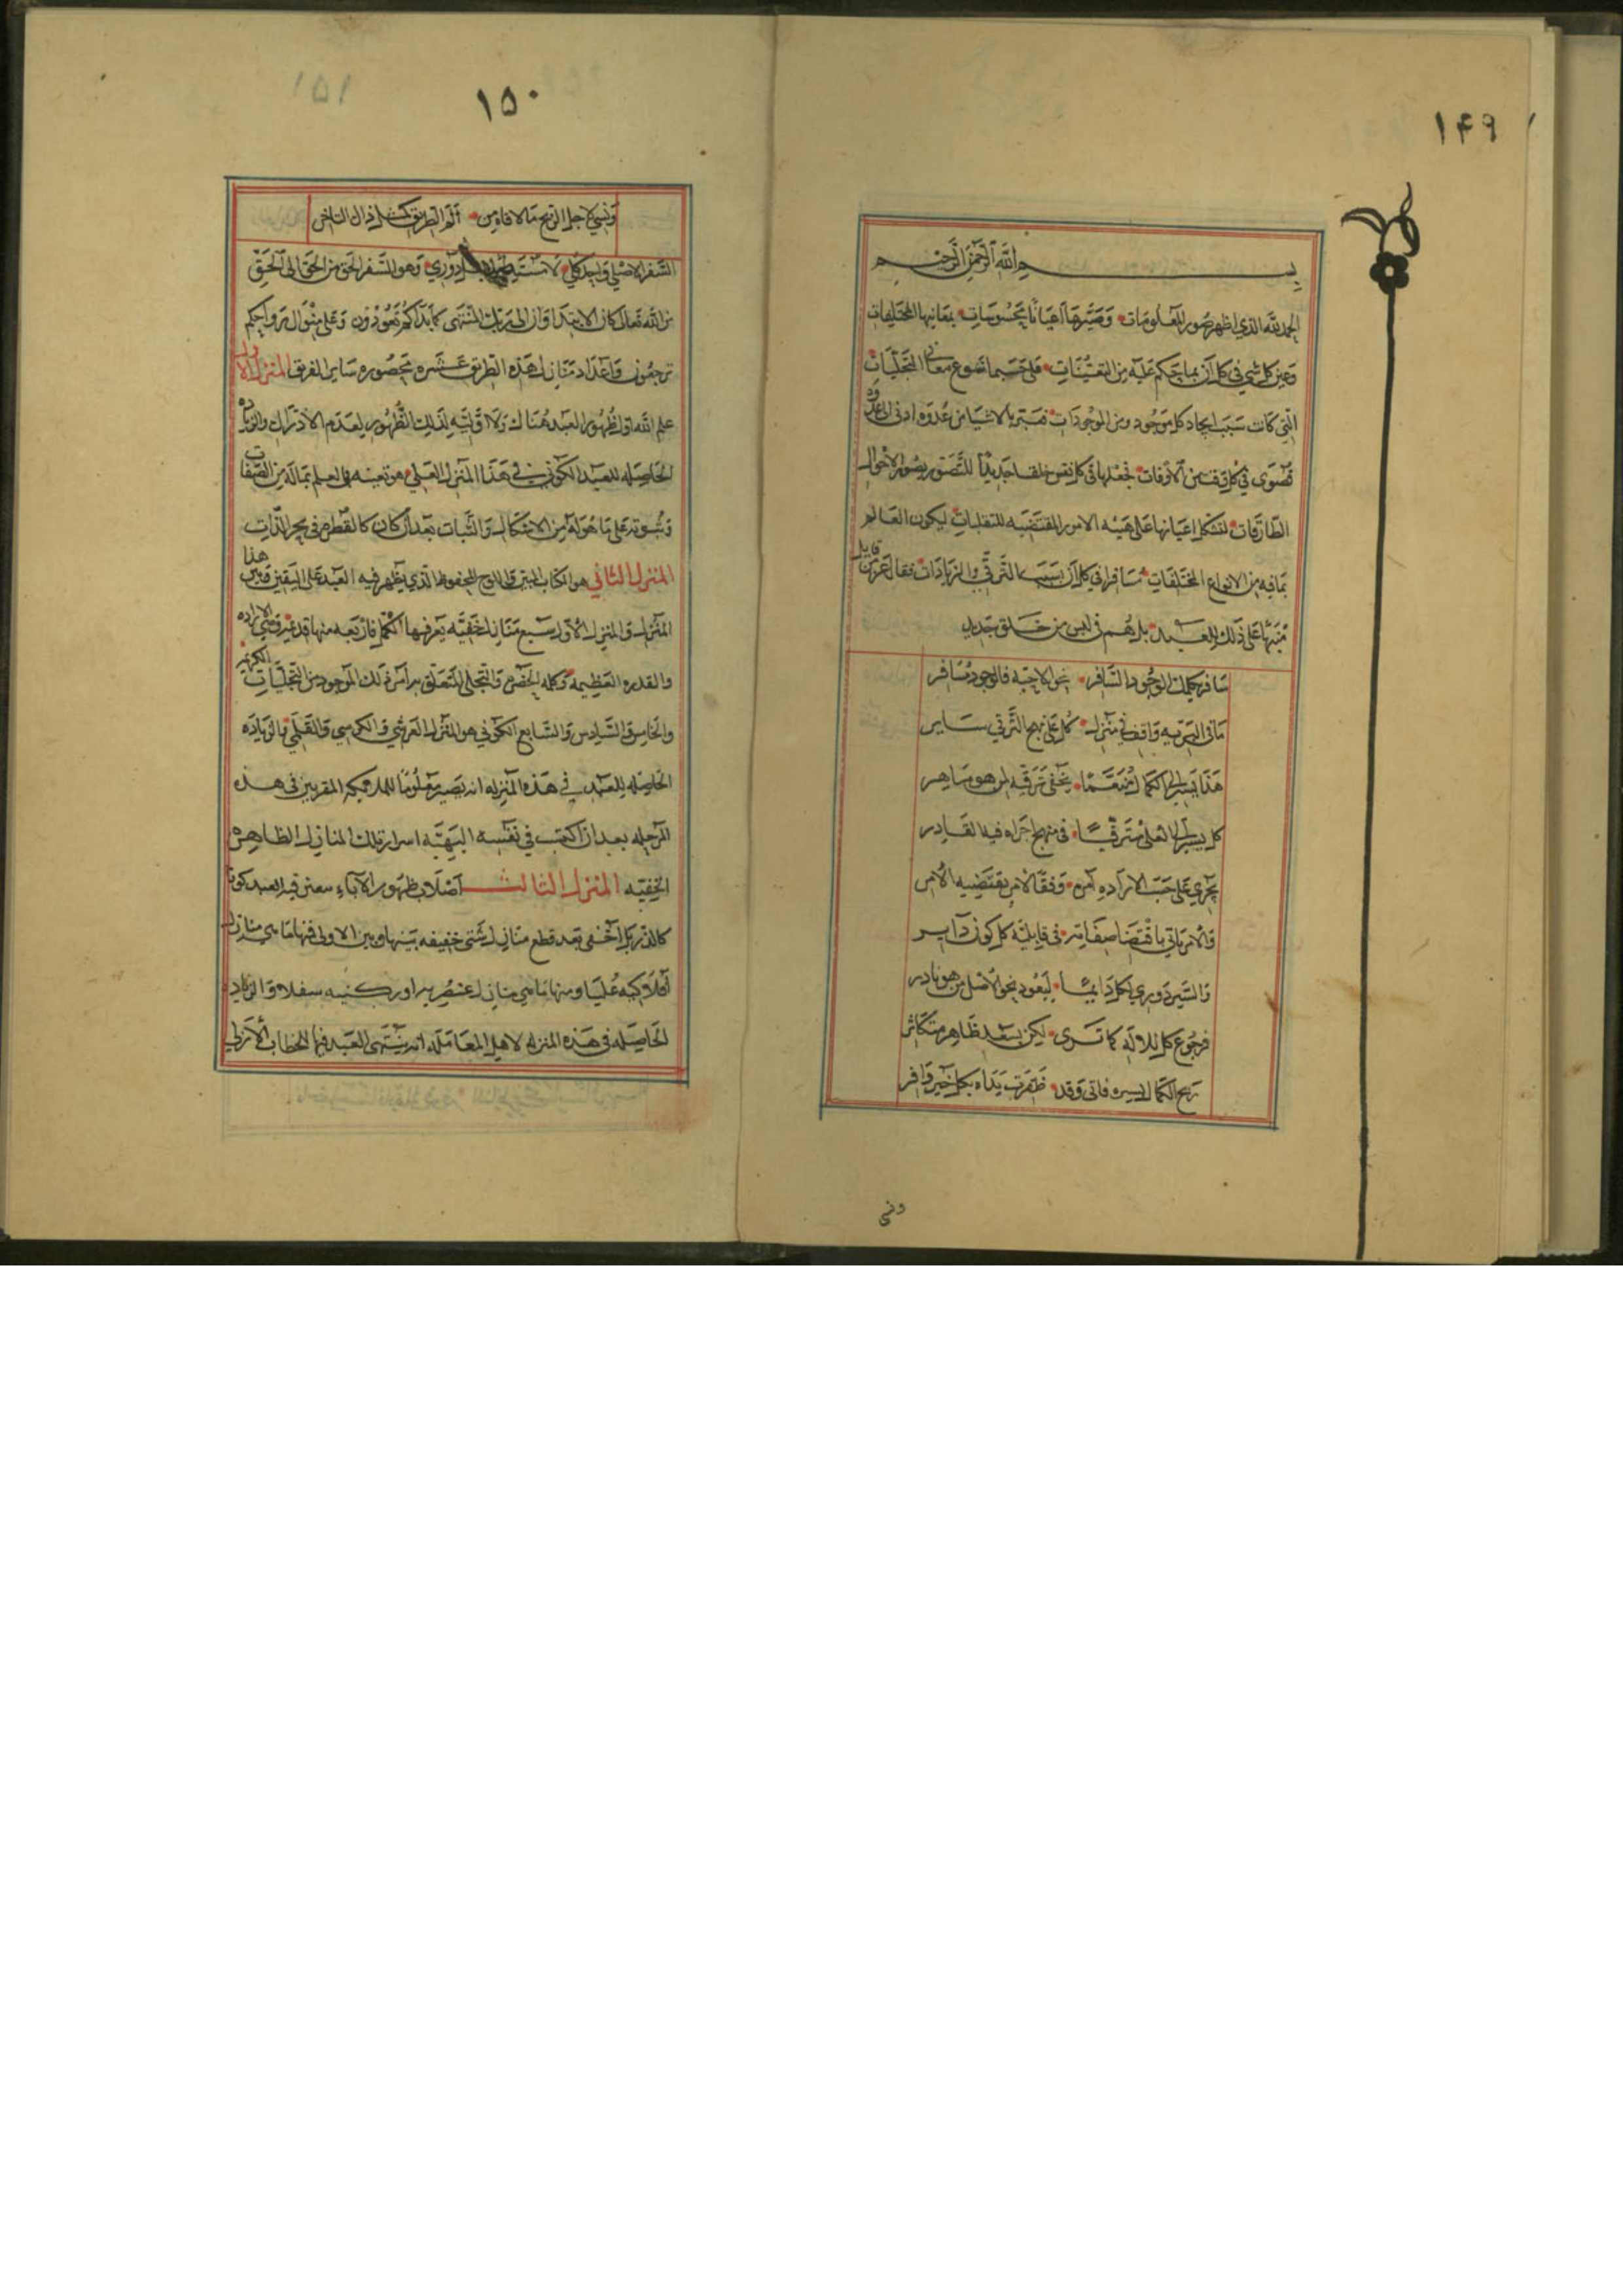 ١٤٩
بسم الله الرحمن الرحيم
الحمد لله الذي اظهر صور المعلومات وصيرها اعيانا محسوسات بمعانيها المختلفات
وعين كل شي في كل آن بما يحكم عليه من التعينات فلي حسبما تنوع معاني التجليات
التي كانت سبب ايجاد كل موجود من الموجودات فسير بالاشيا من عدوه ادنى الى عدوه
قصوى في كل وقت من الاوقات فجعلها في كل نفس خلقا جديدا للتصور بصور الاحوال
الطارقات لتشكل اعيانها على هيئه الامور المقتضيه للتقلبات ليكون العالم
بما فيه من الانواع المختلفات مسافرا في كل آن بسبب الترقي والزيادات فقال عز من قايل
منبها على ذلك للعبيد بل هم في لبس من خلق جديد
سافر بحكمك الوجود السافر نحو الاحبه فالوجود مسافر
ما في البريه واقف في منزل كل على نهج الترقي ساير
هذا يسير الى الكمال منعما يخفى ترقيه لمن هو ماهر
كل يسير الى العلى مترقيا في منهاج اجراه فيه القادر
يجري على حسب الاراده امره وفقا لامر يقتضيه الآمر
والامر ياتي باقتضا صفاته في قابلية كل كون داير
والسير دوري لكل دايما ليعود نحو الاصل من هو نادر
فرجوع كل للاله كما ترى لكن بسعد ظاهر متكاثر
ربح الكمال بسيره فاتى وقد ظفرت يداه بكل خير وافر
ونسي
١٥٠
ونسي لاجل الربح ما لاقاه من الم الطريق كذاك الناجر
السفر الاصلي واحد كلي دوري وهو السفر الحق من الحق الى الحق
من الله تعالى كان الابتدا وان الى ربك المنتهى كما بداكم تعودون وعلى منوال
ترجعون واعداد منازل هذه الطريق عشره محصوره ساير الفرق المنزل الاول
علم الله اول ظهور العبد هناك ولا اولية لذلك الظهور لعدم الادراك والزياده
الحاصله للعبد الكوني في هذا المنزل العلمي هو تعينه في العلم بما له من الصفات
وثبوته على ما هو له من الاشكال والثبات بعد ان كان كالقطره في بحر الذات
المنزل الثاني هو الكتاب المبين واللوح المحفوظ الذي يظهر فيه العبد على اليقين وبين هذا
المنزل والمنزل الاول سبع منازل خفيه يعرفها الكمل فاربعه منها قد عبر وهي الاراده
والقدره العظيمه وكلمه الحضره والتجلي المتعلق بامر ذلك الموجود من التجليات الكريمه
والخامس والسادس والسابع الكوني هو المنزل العرشي والكرسي والقلمي والزياده
الحاصله للعبد في هذه المنزله انه يصير معلوما للملائكه المقربين في هذه
المرحله بعد ان اكتسب في نفسه البهيه اسرار تلك المنازل الظاهره
الخفيه المنزل الثالث اصلاب ظهور الآباء العبد كونه
كالذر بل اخفى بعد قطع منازل شتى خفيفه بينها وبين الاولى فمنها ما هي منازل
افلاكيه عليا ومنها ما هي منازل عنصريه اوركنيه سفلا والزياده
الحاصله في هذه المنزله لاهل المعامله انه ينتهي العبد فيها للخطاب الازلي